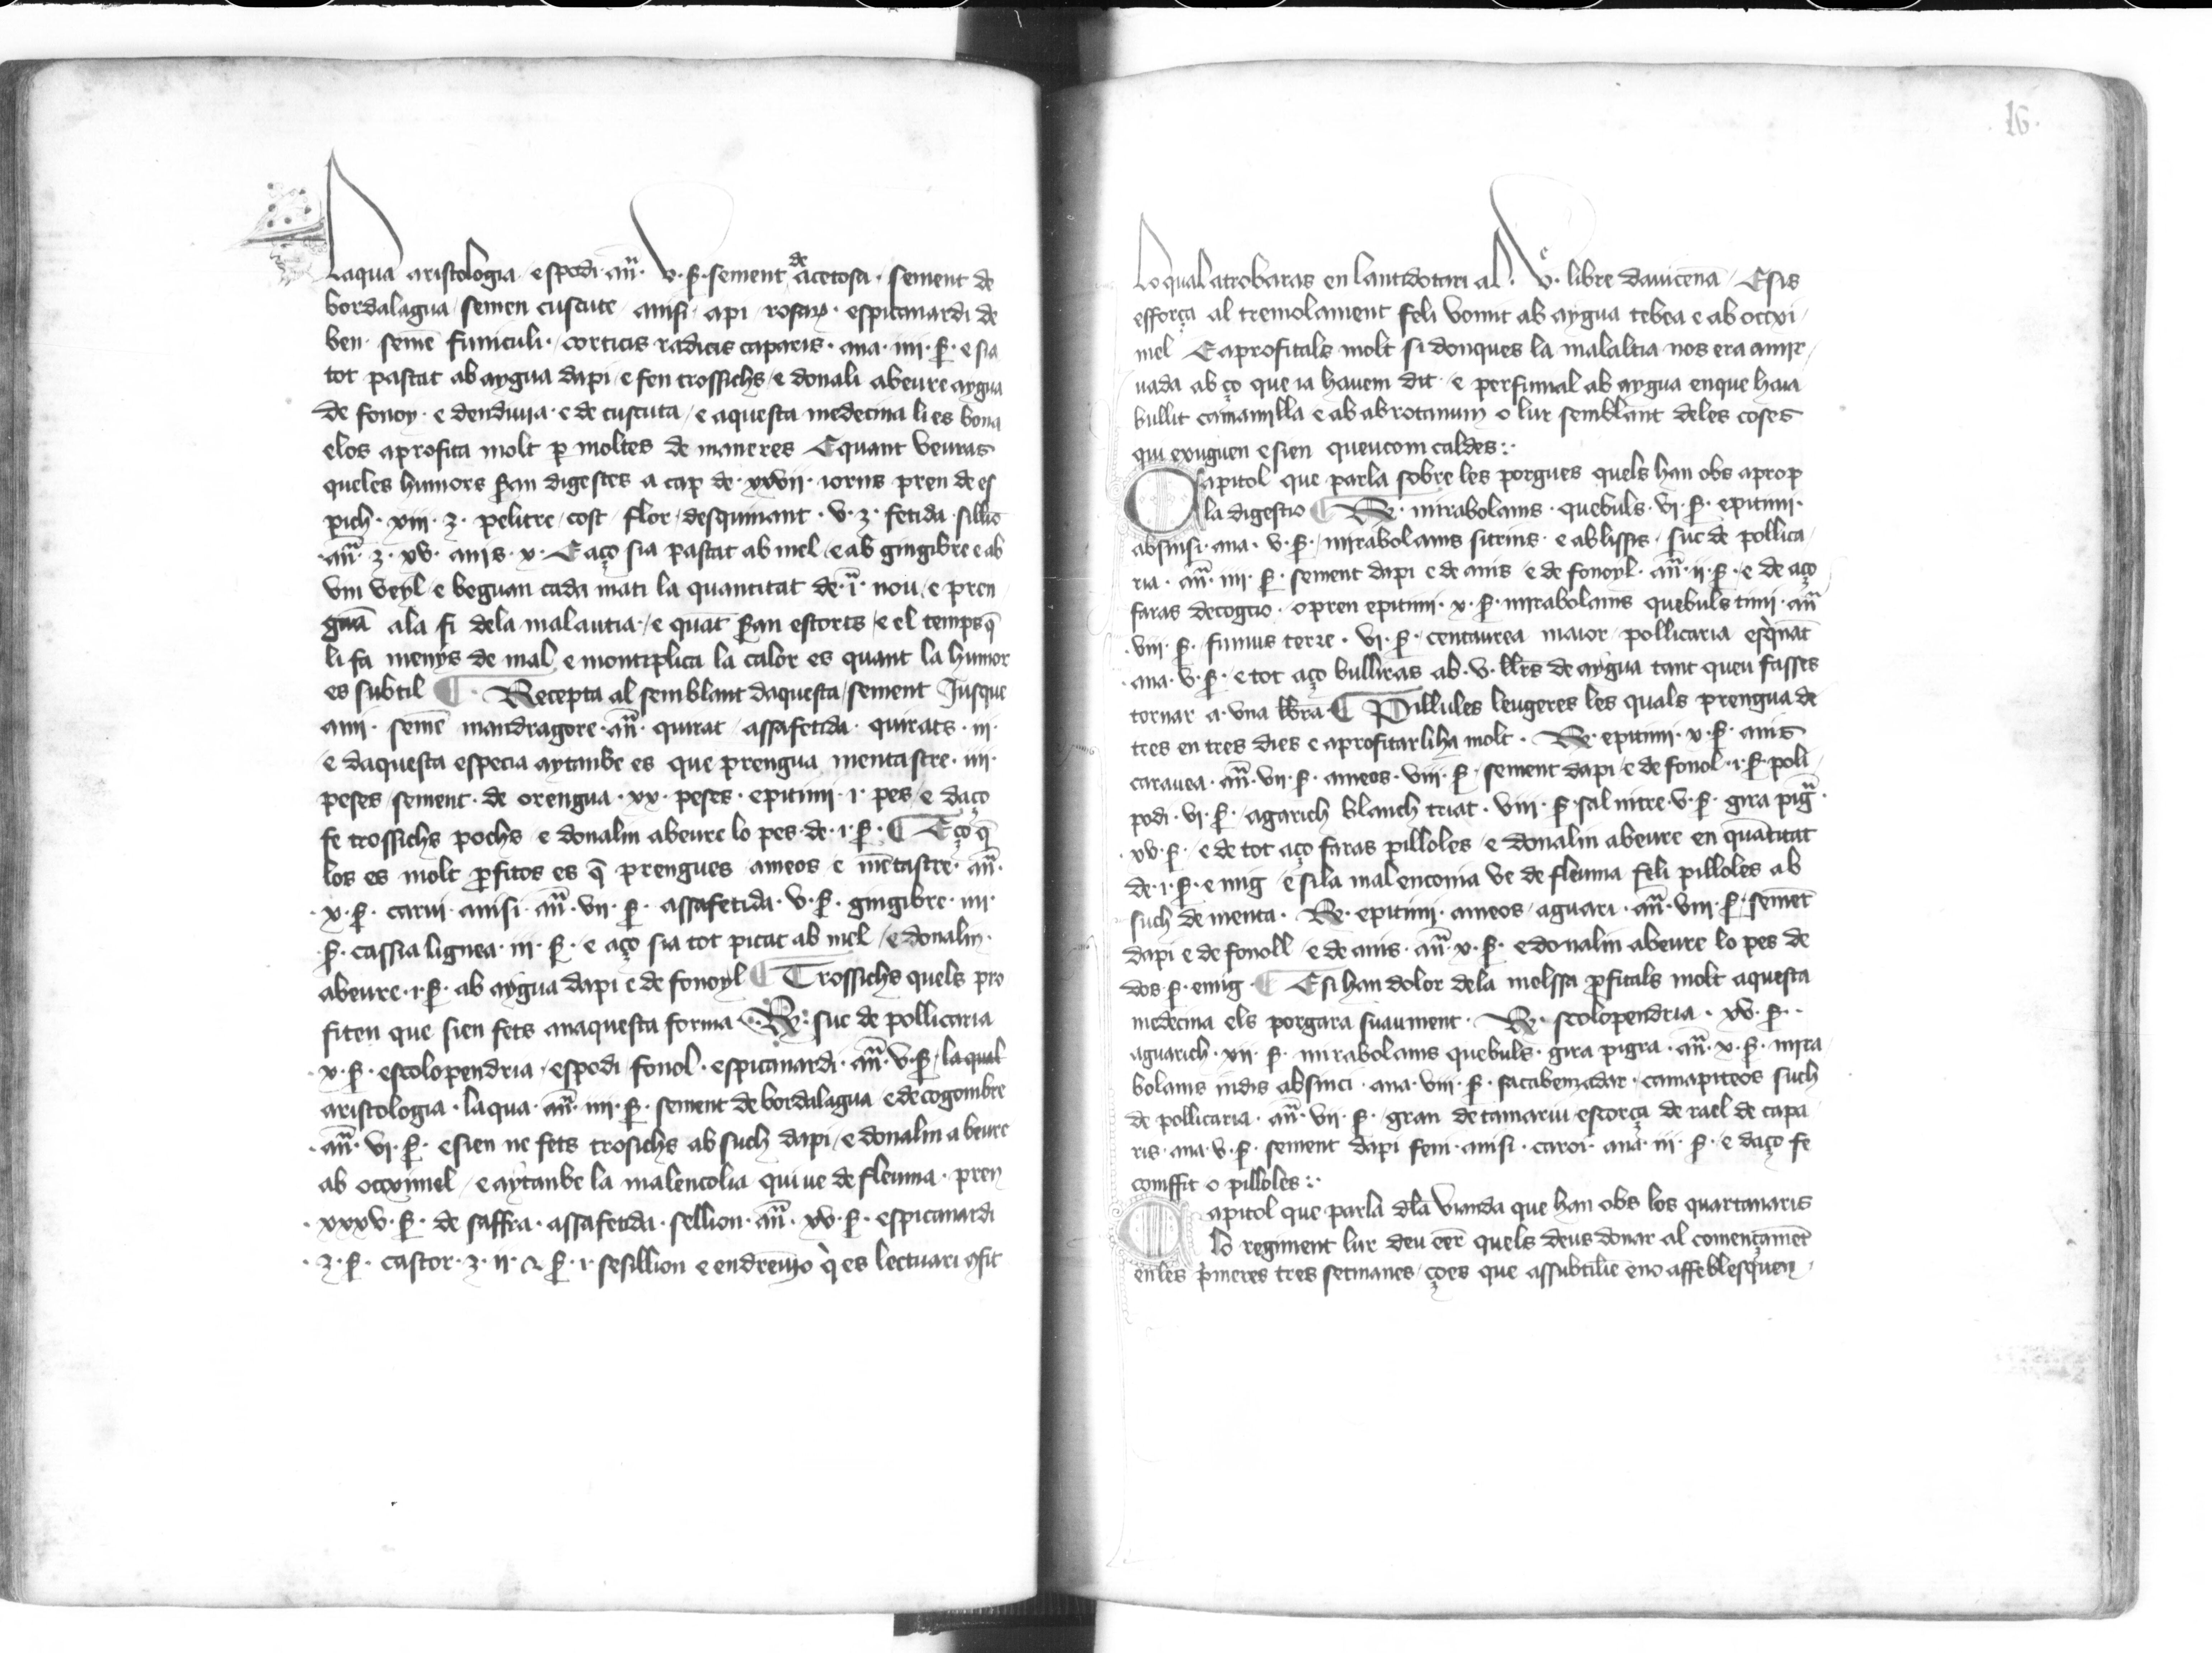 Laqua aristologia espodi an̄. v. ß. sement de acetosa. sement de
bordalagua semen cuscute anisi api rosarꝝ. espicanardi de
ben semē funiculi. corticis radicis caparis. ana. iiii. ß. e sia
tot pastat ab aygua dapi e fen trossichs e donali abeure aygua
de fonoy. e dendiuia. e de cuscuta e aquesta medecina li es bona
elos aprofita molt ꝑ moltes de maneres Equant veuras
queles humors s̄an digestes a cap de. xxvii. iorns pren de es
pich. xiii. ʒ. pelitre cost flor desquinant. v. ʒ. fetida sillio
an̄. ʒ. xv. anis. x. E aço sia pastat ab mel e ab gingibre e ab
vin veyl e beguan cada mati la quantitat de. i̅. nou e pren
guā ala fi dela malautia. e quāt s̄an estorts e el temps q̄
li fa menys de mal e montiplica la calor es quant la humor
es subtil ¶ Recepta al semblant daquesta sement Jusque
ami. semē mandragore. an̄. quirat assafetida. quirats. iii.
e daquesta especia aytambe es que prengua mentastre. iiii.
peses sement. de orengua. xx. peses. epitimi. i. pes e daço
fe trossichs pochs e donalin abeure lo pes. de. i. ß. ¶ Eço q̄
los es molt ꝓfitos es q̄ prengues ameos e mētastre. an̄.
x. ß. carui. anisi. an̄. vii. ß. assafetida. v. ß. gingibre. iii.
ß. cassia lignea. iii. ß. e aço sia tot picat ab mel e donalin.
abeure. i. ß. ab aygua dapi e de fonoyl ¶ Trossichs quels pro
fiten que sien fets anaquesta forma Re. suc de pollicaria
x. ß. escolopendria. espodi fonol. espicanardi. an̄. v. ß. la qual
aristologia. laqua. an̄. iiii. ß. sement de bordalagua e de cogombre
an̄. vi. ß. e sien ne fets trosichs ab such dapi e donalin abeure
ab occximel e aytanbe la malencolia qui ue de fleuma. pren
xxxv. ß. de saffra. assafetida. sellion. an̄. xv. ß. espicanardi
ʒ. ß. castor. ʒ. ii. ß. i. sesillion e q̇ es lectuari ꝯfit
16.
Lo qual atrobaras en lantidotari al. v.e libre dauicena Esis
esforça al tremolament feli vomit ab aygua tebea e ab occxi
mel E aprofitals molt si donques la malaltia nos era amer
uada ab ço que ia hauem dit. e perfumal ab aygua enque haia
bullit camamilla e ab abrotanum o lur semblant deles coses
qui exuguen e sien queucom caldes:.
Capitol que parla sobre les porgues quels han obs aprop
la digestio ¶ Re. mirabolams. quebuls. vi. ß. epitimi.
absinsi. ana. v. ß. mirabolams sitrins. e ablissis. suc de pollica
ria. an̄. iiii. ß. sement dapi e de anis e de fonoyl. an̄. ii. ß. e de aço
faras decogcio. o pren epitimi. x. ß. mirabolams quebuls timi. an̄
viii. ß. fumus terre. vi. ß. centaurea maior pollicaria esq̇nāt
ana. v. ß. e tot aço bulliras ab. v. llr̄s de aygua tant queu fasses
tornar a. vna llr̄a. ¶ Pillules leugeres les quals prengua de
tres en tres dies e aprofitarliha molt. Re. epitimi. x. ß. anis
carauea. an̄. vii. ß. ameos. viii. ß. sement dapi e de fonol. i. ß. poli
podi. vi. ß. agarich blanch triat. viii. ß. sal nitre. v. ß. gira pig̃.
xv. ß. e de tot aço faras pilloles e donalin abeure en quātitat
de. i. ß. e mig e sila malenconia ve de fleuma feli pilloles ab
such de menta. Re. epitimi. ameos aguari. an̄. viii. ß. semēt
dapi e de fonoll e de anis. an̄. x. ß. e donalin abeure lo pes de
dos. ß. e mig. ¶ E si han dolor dela melssa ꝓfitals molt aquesta
medecina els porgara suaument. Re. scolopendria. xv. ß.
aguarich. xii. ß. mirabolams quebuls. gira pigra. an̄. x. ß. mira
bolams indis absinci. ana. viii. ß. sacabenzadar. camapiteos such
de pollicaria. an̄. vii. ß. gran de tamariu escorça de rael de capa
ris. ana. v. ß. sement dapi feni. anisi. caroi. ana. iii. ß. e daço fe
comffit o pilloles:.
Capitol que parla dla vianda que han obs los quartanaris
lo regiment lur deu eēr quels deus donar al començamēt
enles ṗmeres tres setmanes çoes que assubtilie eno affeblesquen